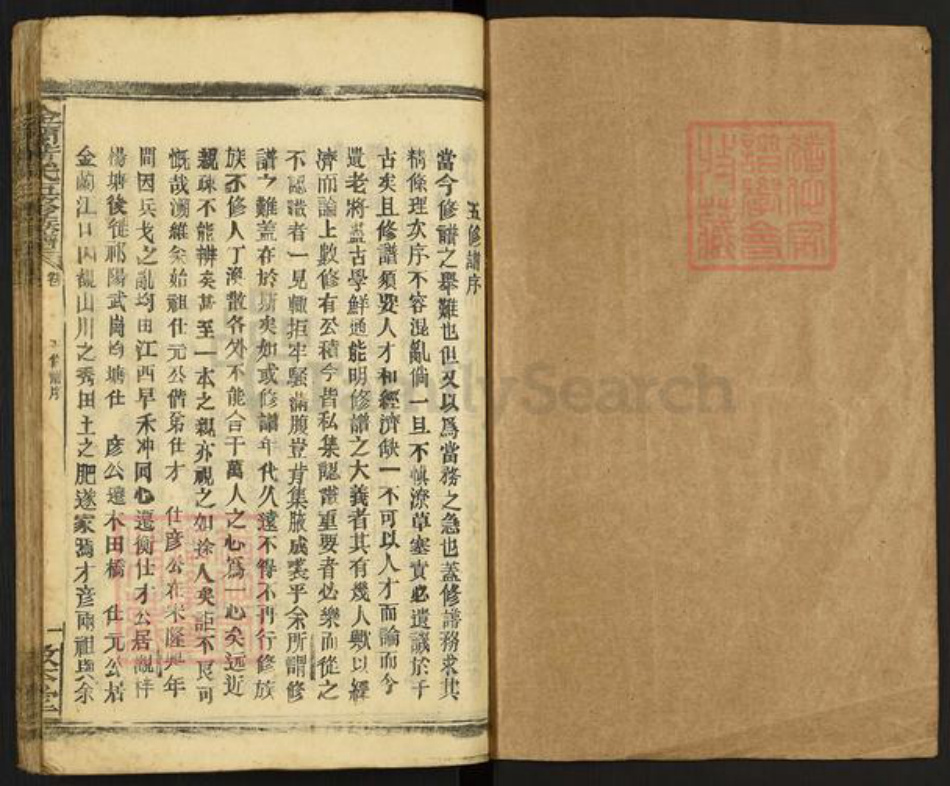 五修譜序
當今修譜之舉難也但又以爲當務之急也蓋修譜務求其
精條理次序不容混亂倘一旦不愼潦草塞責必遺譏於千
古矣且修譜須要人才和經濟缺一不可以人才而論而今
遺老將盡古學鮮通能明修譜之大義者其有幾人歟以經
濟而論上數修有公積今皆私集認譜重要者必樂而從之
不認識者一見輙拒牢騷滿腹豈肯集腋成裘乎余所謂修
譜之難蓋在於斯矣如或修譜年代久遠不得不再行修族
族不修人丁渙散各外不能合千萬人之心爲一心矣远近
親疎不能辨矣甚至一本之親亦視之如途人矣詎不良可
慨哉溯維矣始祖仕元公偕弟仕才 仕彦公在宋隆興年
間因兵戈之亂均由江西早禾冲同心遷衡仕才公居
楊塘後徙祁陽武崗均塘仕 彦公遷木田橋 仕元公居
金蘭江口因觀山川之秀田土之肥遂家焉才彦兩祖與余
卷
五修譜序
一
FamilySearch